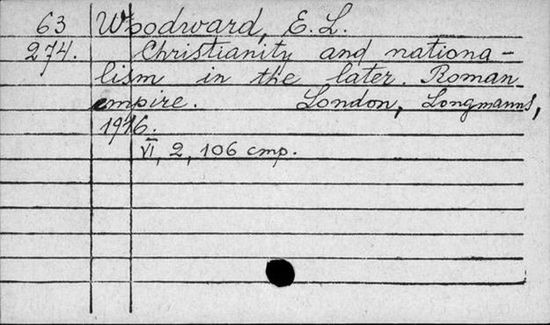 63 Woodward, E. L.
274. Christianity and nationa-
lism in the later Roman
empire. London, Longmanns,
1916.
VI, 2, 106 cmp.